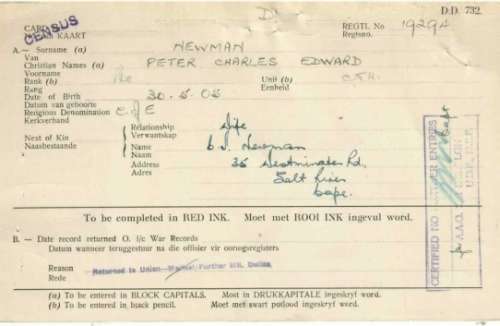 D.D. 732.
CENSUS
CARD
KAART
REGTL No 19294
Regtsno.
A.— Surname (a) NEWMAN
Van
Christian Names (a) PETER CHARLES EDWARD
Voorname
Rank (b) Pte Unit (b)
Rang Eenheid
Date of Birth 30.5.05
Datum van geboorte
Religious Denomination C of E
Kerkverband
Relationship Wife
Verwantskap
Next of Kin
Naasbestaande
Name Newman
Naam
Address 36 Westminster Rd.
Adres Salt River
Cape.
To be completed in RED INK. Moet met ROOI INK ingevul word.
B. — Date record returned O. i/c War Records
Datum wanneer teruggestuur na die offisier vir oorlogsregisters
Reason Returned to Union Further Mil. Duties
Rede
(a) To be entered in BLOCK CAPITALS. Moet in DRUKKAPITALE ingeskryf word.
(b) To be entered in black pencil. Moet met swart potlood ingeskryf word.
CERTIFIED NO ENTRIES
Capt
A.A.G.